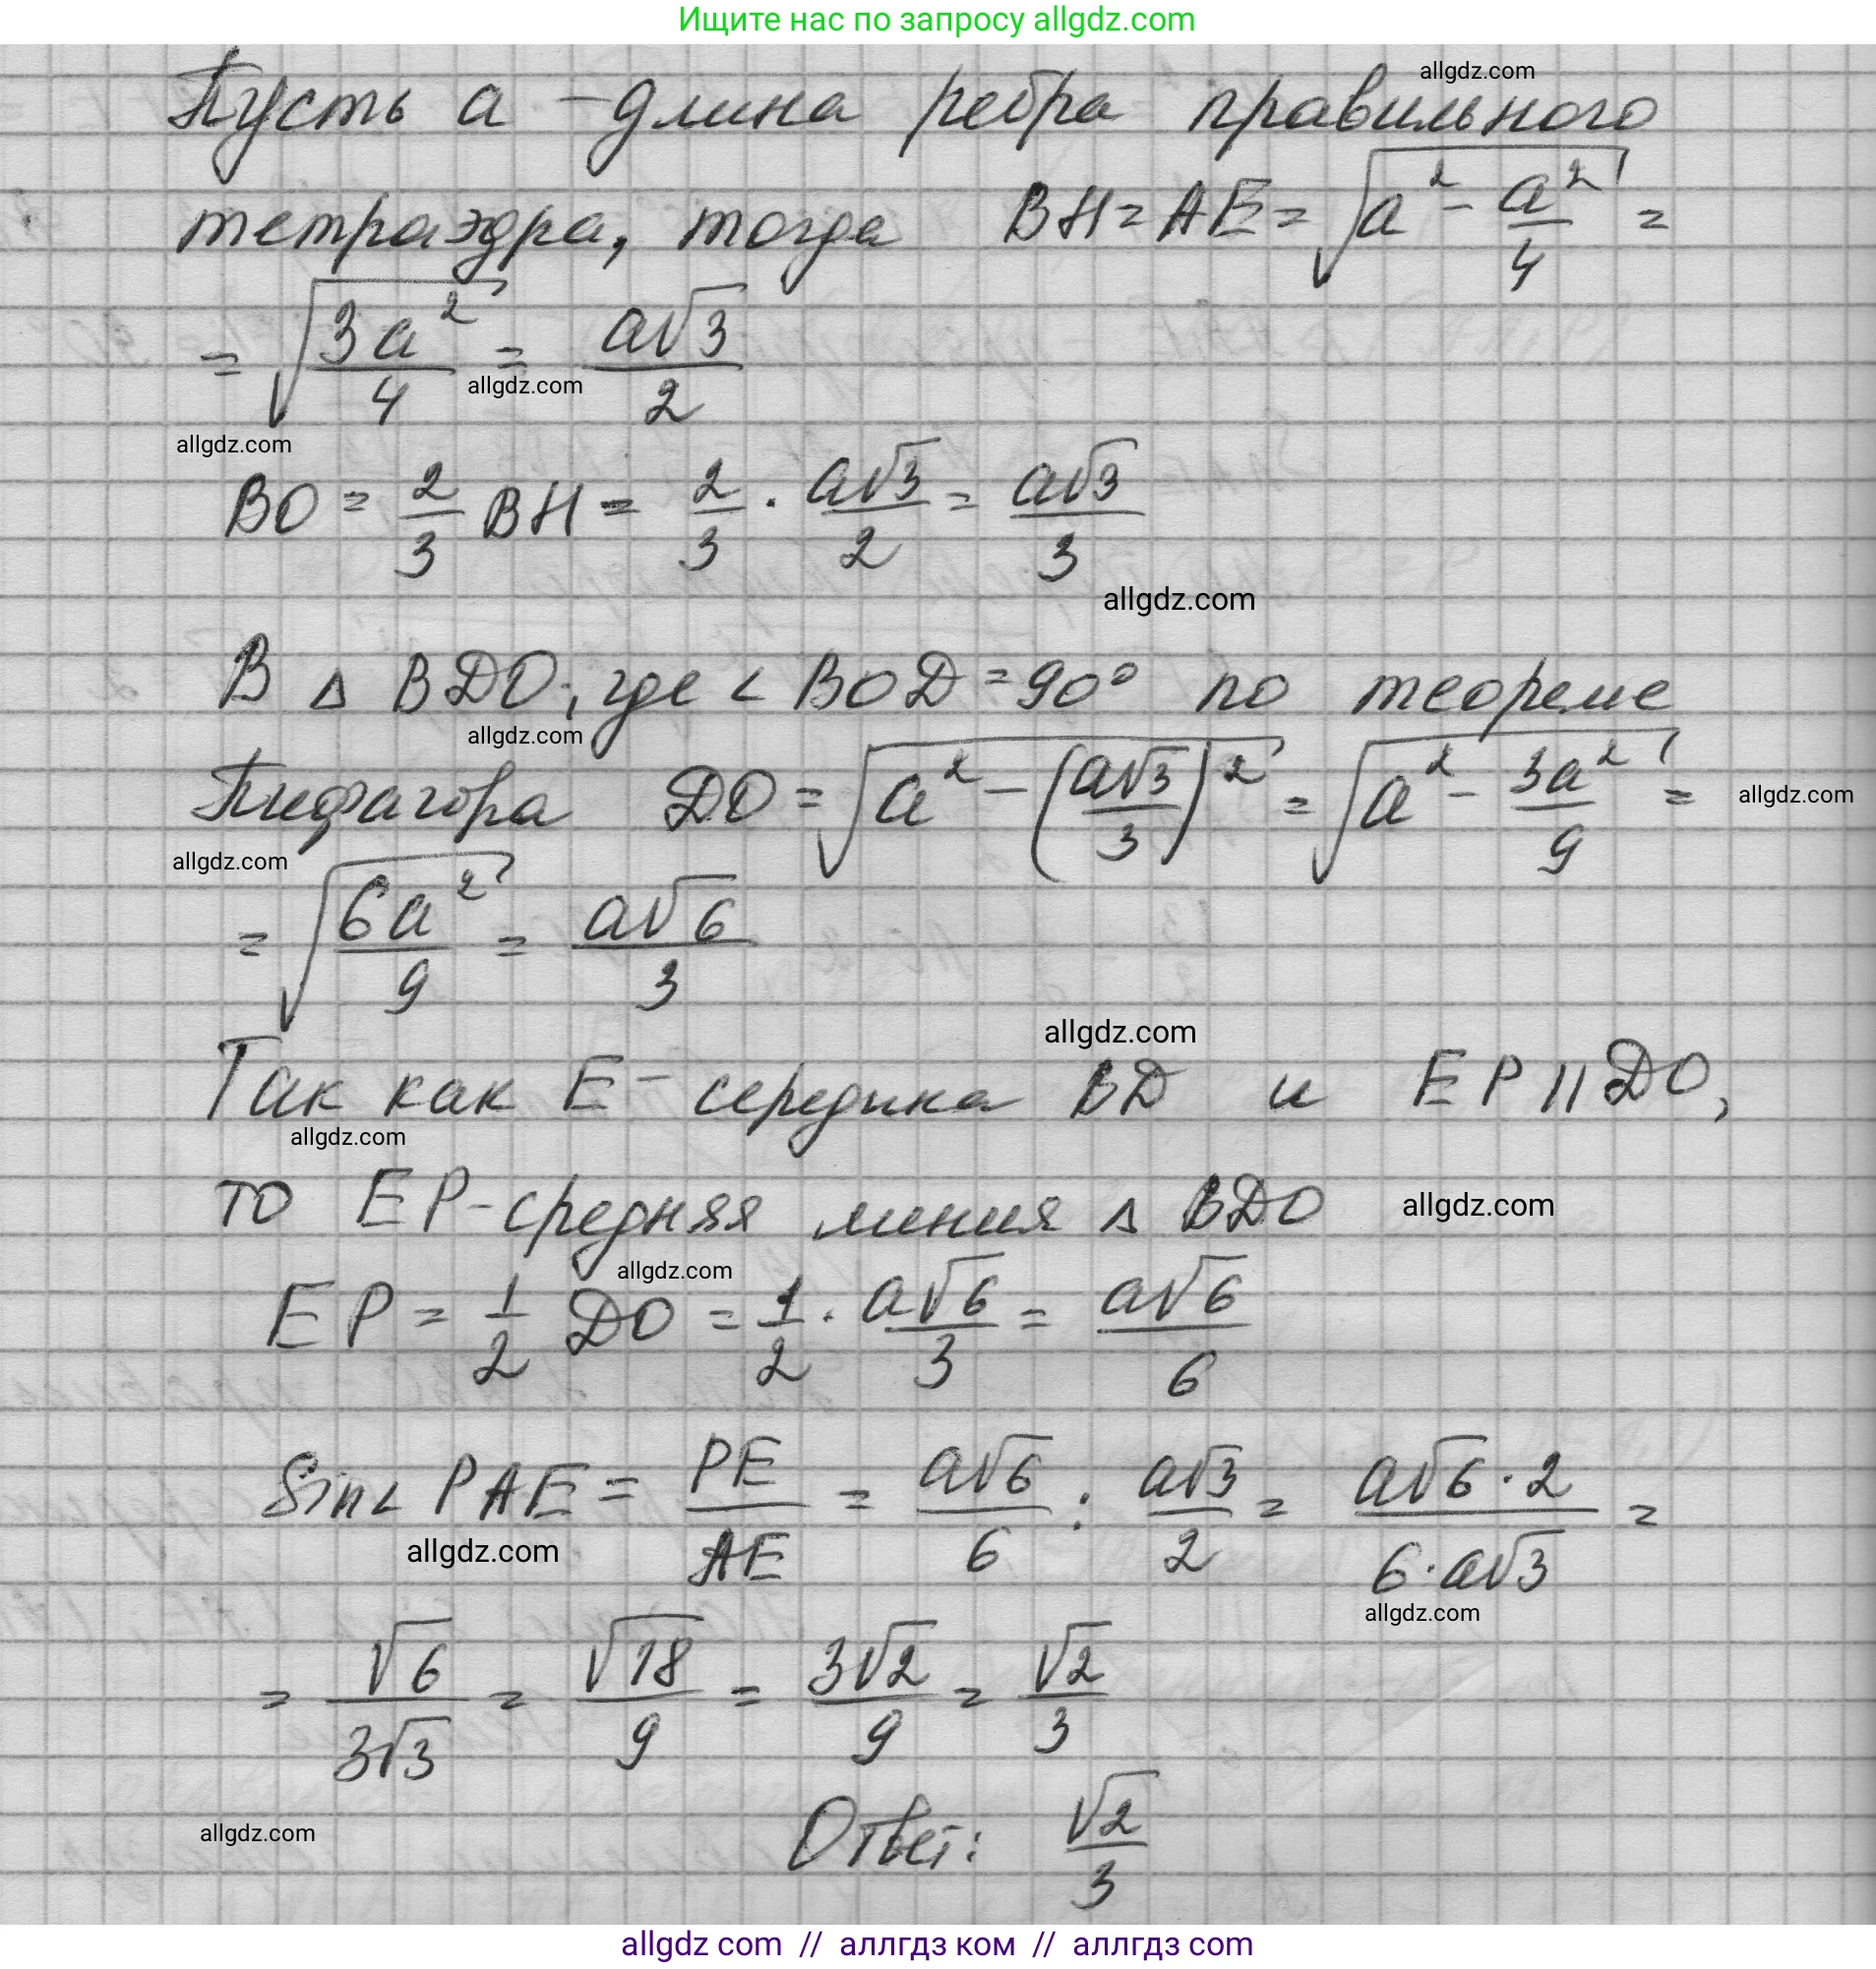 Ищите нас по запросу allgdz.com
allgdz.com
Пусть a - длина ребра правильного
тетраэдра, тогда BH = AE = √(a² - a²/4) =
= √(3a²/4) = a√3/2
allgdz.com
allgdz.com
BO = 2/3 BH = 2/3 · a√3/2 = a√3/3
allgdz.com
В △ BDO, где < BOD = 90° по теореме
allgdz.com
Пифагора DO = √(a² - (a√3/3)²) = √(a² - 3a²/9) =
allgdz.com
allgdz.com
= √(6a²/9) = a√6/3
allgdz.com
Так как E - середина BD и EP || DO,
allgdz.com
то EP - средняя линия △ BDO
allgdz.com
allgdz.com
EP = 1/2 DO = 1/2 · a√6/3 = a√6/6
Sin< PAE = PE/AE = a√6/6 : a√3/2 = a√6·2/6·a√3 =
allgdz.com
allgdz.com
= √6/3√3 = √18/9 = 3√2/9 = √2/3
allgdz.com
Ответ: √2/3
allgdz com // аллгдз ком // аллгдз com